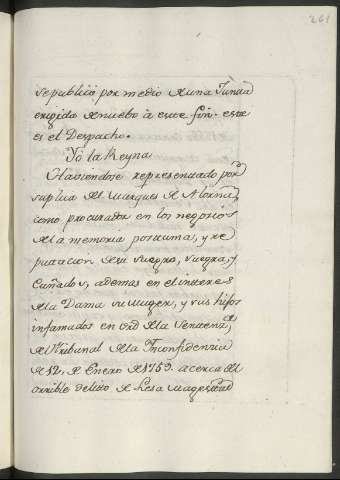 261
se publicò por medio de una Junta
erigida de nuebo à este fin. este
es el Despacho.
Yò la Reyna
Haviendose representado por
suplica del Marques de Alorna,
como procurador en los negocios
de la memoria postuma, y re
putacion de su suegro, suegra, y
Cuñados, ademas en el interes
de la Dama su Muger, y sus hijos
infamados en ord. de la Sentencia,
del tribunal de la Inconfidenzia
de 12, de Enero de 1759. acerca del
orrible delito de Lesa Magestad